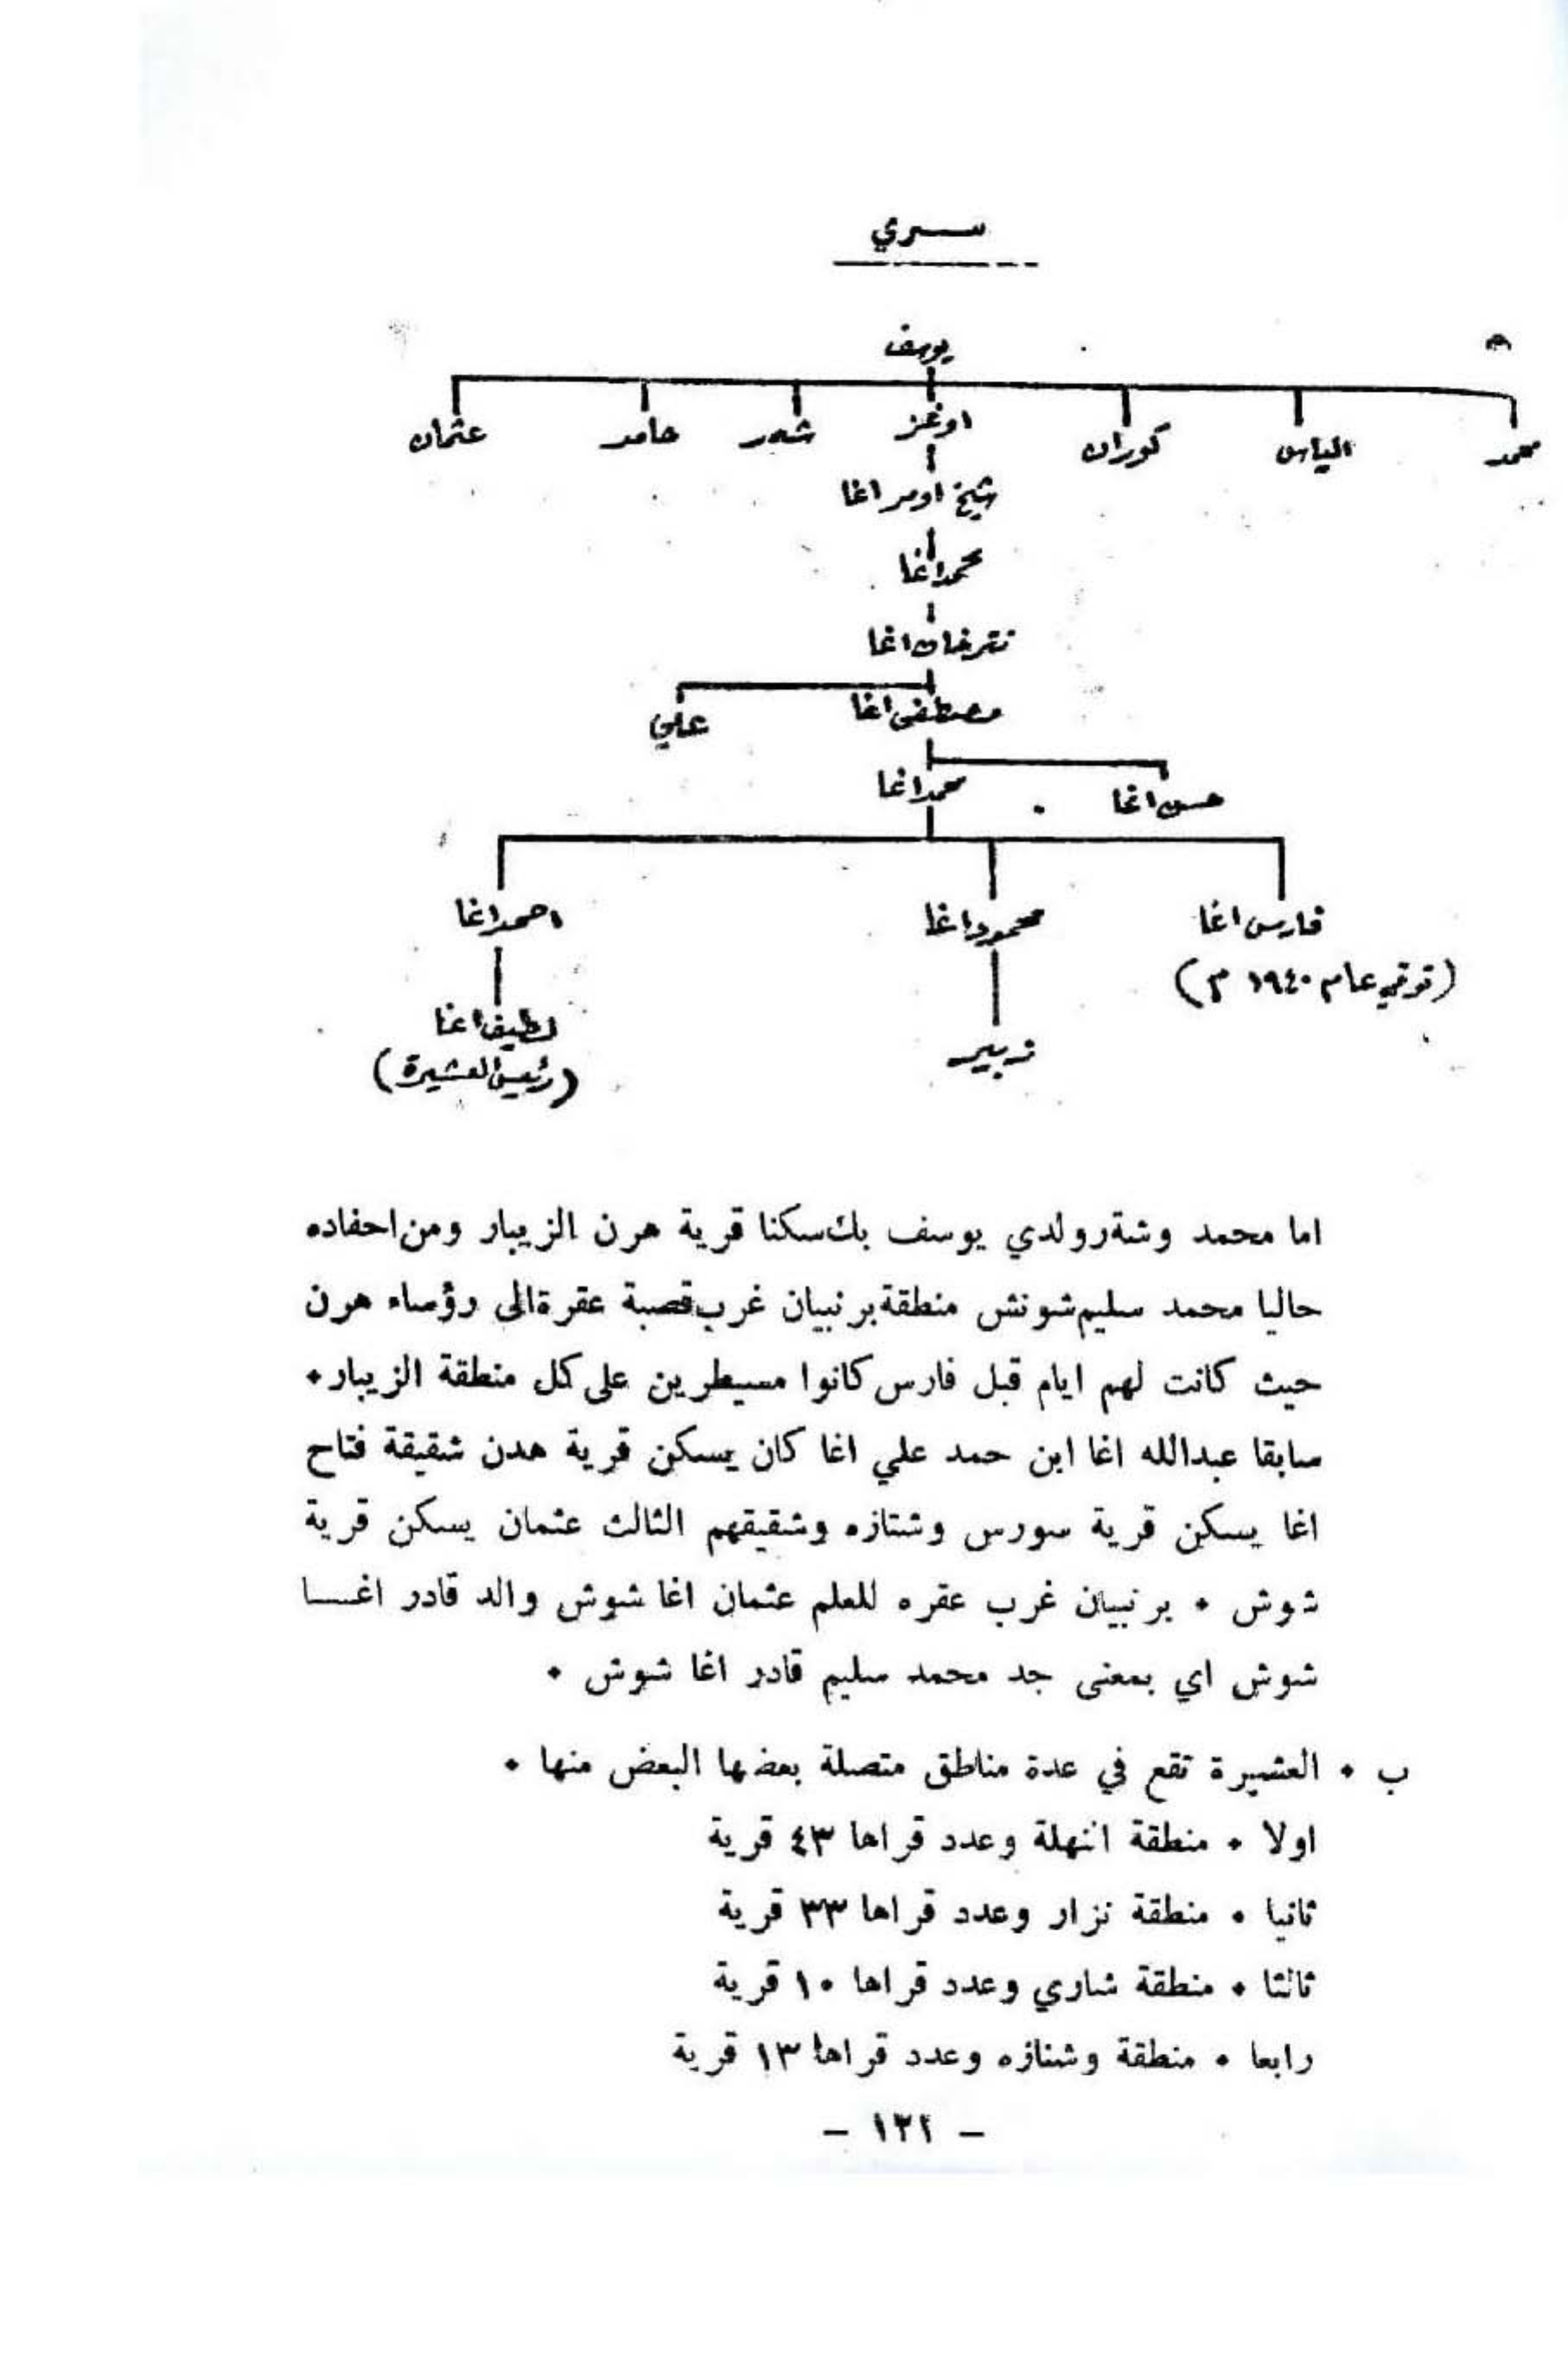 سري
يوسف
محمد الياس كوران اوغز شەدر حامد عثمان
شيخ اومر اغا
محمد اغا
تترخان اغا
مصطفى اغا علي
حسن اغا محمد اغا
فارس اغا محمود اغا احمد اغا
(توفي عام ١٩٤٠ م)
زبير لطيف اغا
(رئيس العشيرة)
اما محمد وشةرولدي يوسف بك سكنا قرية هرن الزيبار ومن احفاده
حاليا محمد سليم شونش منطقة برنبيان غرب قصبة عقرة الى رؤساء هرن
حيث كانت لهم ايام قبل فارس كانوا مسيطرين على كل منطقة الزيبار ٠
سابقا عبدالله اغا ابن حمد علي اغا كان يسكن قرية هدن شقيقة فتاح
اغا يسكن قرية سورس وشتازه وشقيقهم الثالث عثمان يسكن قرية
شوش ٠ برنبيان غرب عقره للعلم عثمان اغا شوش والد قادر اغــا
شوش اي بمعنى جد محمد سليم قادر اغا شوش ٠
ب ٠ العشيرة تقع في عدة مناطق متصلة بعضها البعض منها ٠
اولا ٠ منطقة انهلة وعدد قراها ٤٣ قرية
ثانيا ٠ منطقة نزار وعدد قراها ٣٣ قرية
ثالثا ٠ منطقة شاري وعدد قراها ١٠ قرية
رابعا ٠ منطقة وشنازه وعدد قراها ١٣ قرية
– ١٢١ –